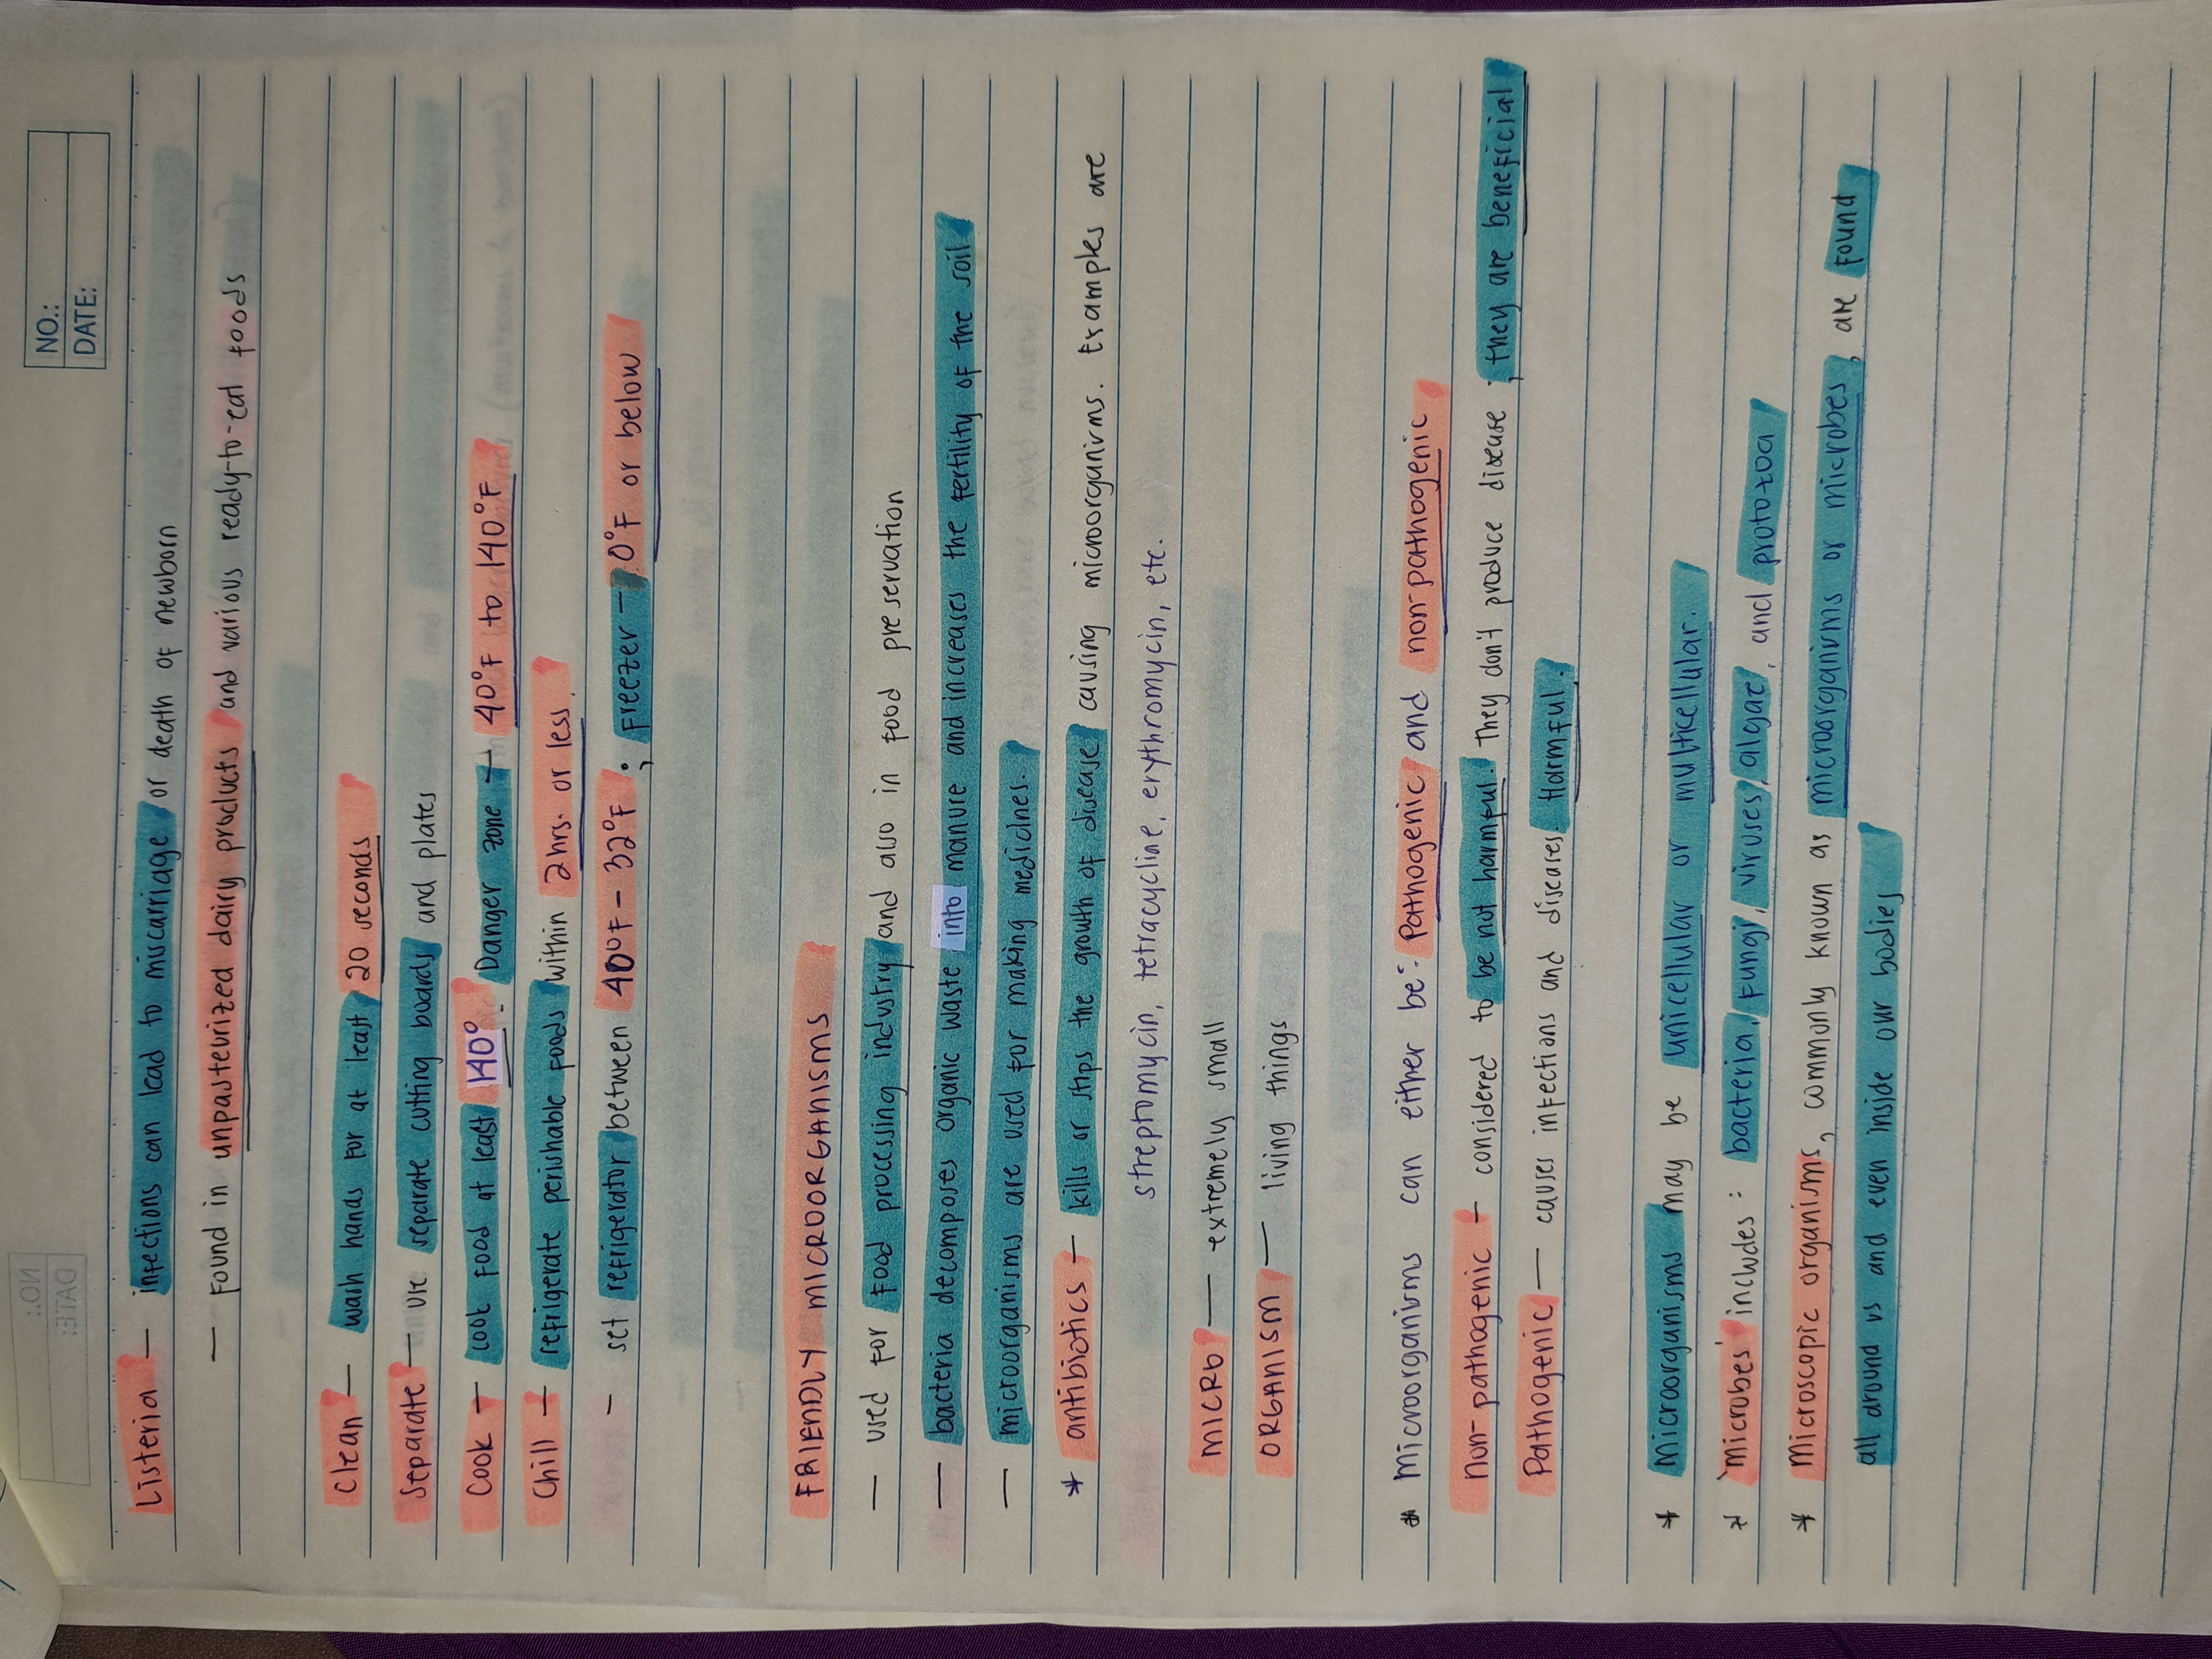 NO.:
DATE:
Listeria — infections can lead to miscarriage or death of newborn
— Found in unpasteurized dairy products and various ready-to-eat foods
Clean — wash hands for at least 20 seconds
Separate — use separate cutting boards and plates
Cook — cook food at least 140°. Danger zone — 40°F to 140°F
Chill — refrigerate perishable foods within 2hrs. or less.
— set refrigerator between 40°F - 32°F ; Freezer — 0°F or below
FRIENDLY MICROORGANISMS
— used for food processing industry and also in food preservation
— bacteria decomposes organic waste into manure and increases the fertility of the soil
— microorganisms are used for making medicines.
* antibiotics — kills or stops the growth of disease causing microorganisms. Examples are
streptomycin, tetracycline, erythromycin, etc.
MICRO — extremely small
ORGANISM — living things
* Microorganisms can either be: Pathogenic and non-pathogenic
Non-pathogenic — considered to be not harmful. They don't produce disease ; they are beneficial
Pathogenic — causes infections and diseases. Harmful.
* Microorganisms may be unicellular or multicellular.
* 'Microbes' includes : bacteria, fungi, viruses, algae, and protozoa
* Microscopic organisms, commonly known as microorganisms or microbes, are found
all around us and even inside our bodies